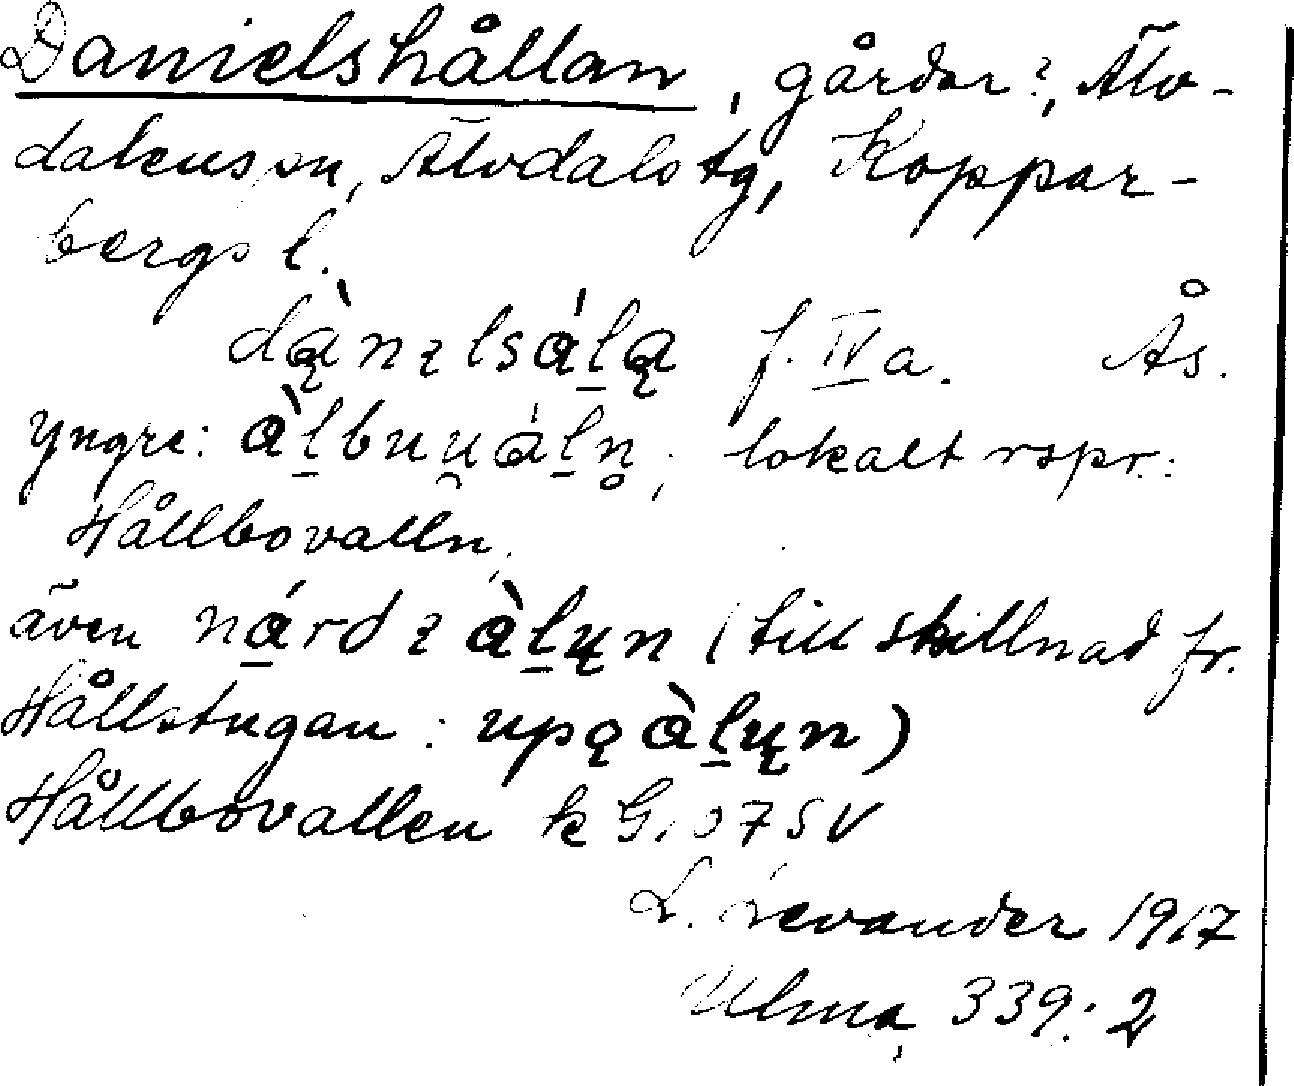 Danielshållan, gårdar?, Älv-
dalens sn, Älvdals tg, Koppar-
bergs l.
dą̀nɛlsá̤l̠ą f. IVa. Ås.
yngre: ὰl̠buu̯ál̠n̥; lokalt rspr.:
Hållbovalln,
även na̠rdɛ ὰl̠ųn (till skillnad fr.
Hållstugan: upǫὰl̠ųn)
Hållbovallen k G, 07 SV
L. Levander 1917
Ulma 339:2